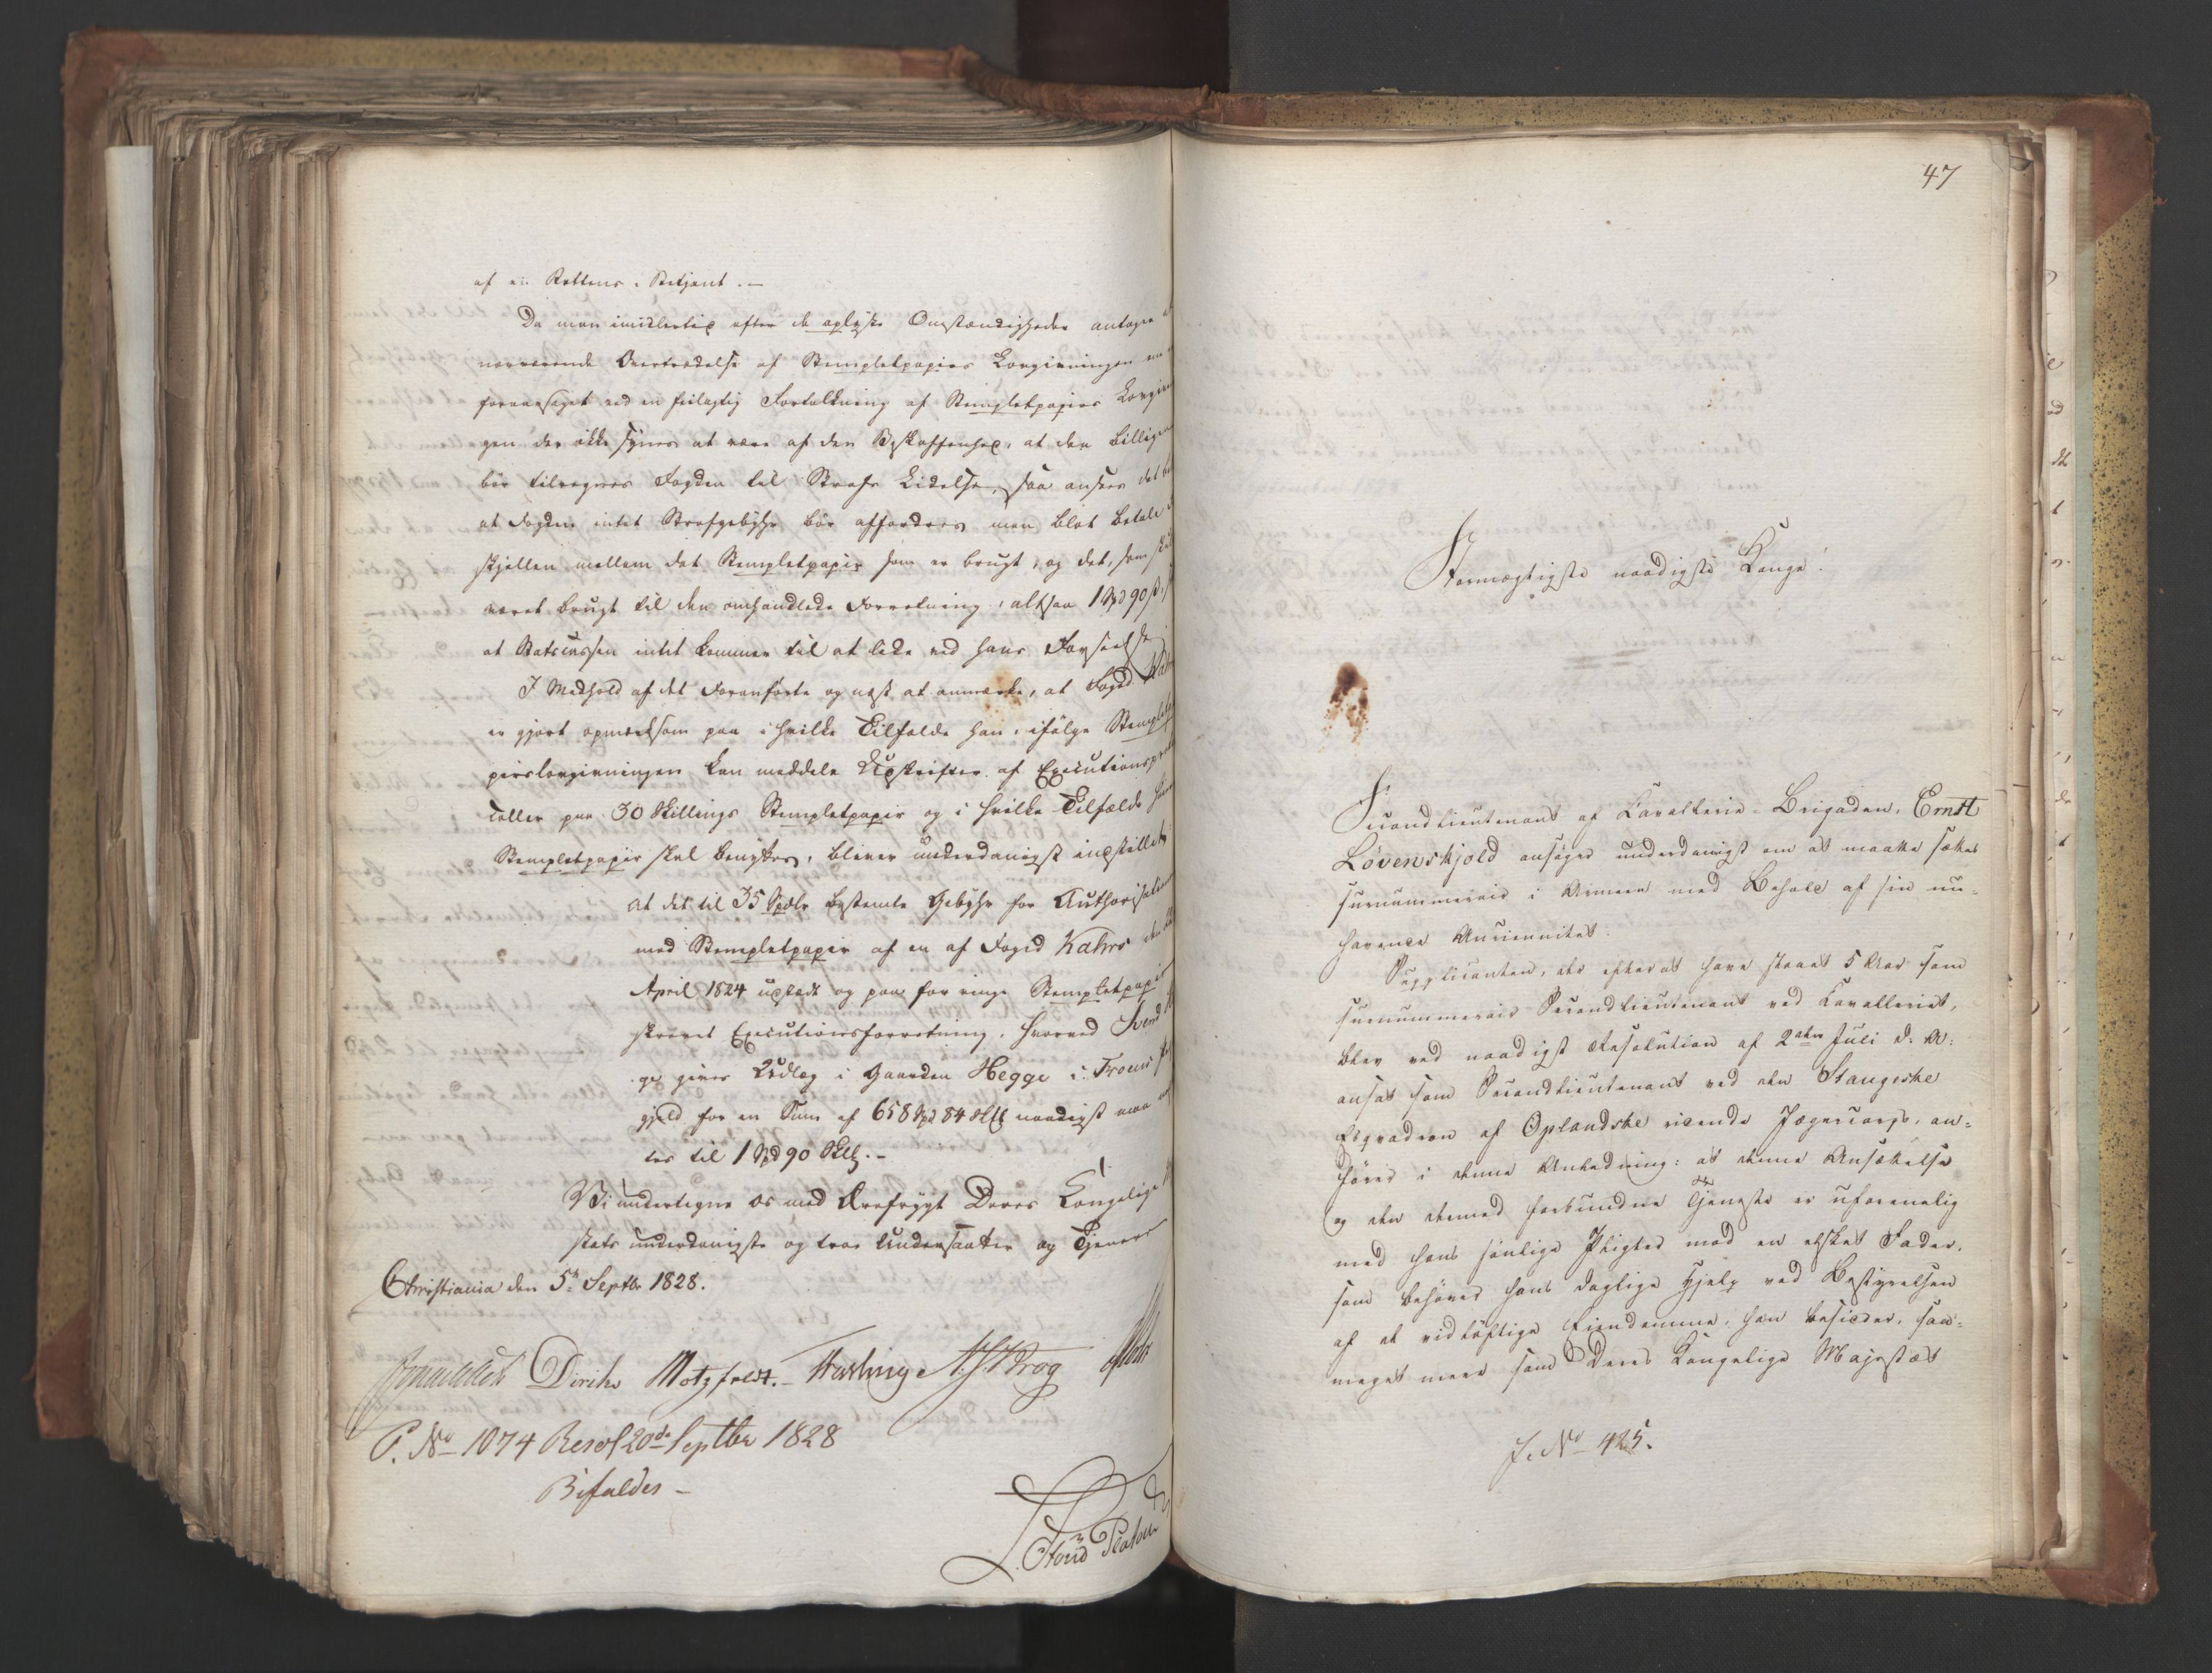 af en Rettens Betjent. —
Da man imidlertid efter de oplyste Omstændigheder antager
nærværende Overtrædelse af Stempletpapiirs Lovgivningen
foraarsaget ved en feilagtig Fortolkning af Stempletpapiirs
gen der ikke synes at være af den Beskaffenhed, at den billigen
bør tilregnes Fogden til Strafs Lidelse, saa ansees det
at Fogden intet Strafgebyhr bør affordres men blot betale
skjellen mellem det Stempletpapiir som er brugt, og det, som
været brugt til den omhandlede Forretning, altsaa 1 Spd 90 ß,
at Statscassen intet kommer til at lide ved hans Forseelse
I Medhold af det Foranførte og næst at anmærke, at Foged
er gjort opmærksom paa i hvilke Tilfælde han, ifølge
pirslovgivningen kan meddele Udskrifter af
coller paa 30 Skillings Stempletpapiir og i hvilke Tilfælde
Stempletpapiir skal benyttes, bliver underdanigst indstillet
at det til 35 Spdlr bestemte Gebyhr for
med Stempletpapiir af en af Foged Kahrs
April 1824 udstedt og paa for ringe Stempletpapiir
skrevet Executionsforretning, hvorved Svend
ges gives Udlæg i Gaarden Hegge i
gjeld for en Sum af 658 Spd 84 Sk naadigst maa
tes til 1 Spd 90 Sk. —
Vi undertegne os med Ærefrygt Deres Kongelige
stæts underdanigste og troe Undersaatter og Tjenere
Christiania den 5te Septbr 1828.
Diriks Motzfeldt. — Fasting A. S. Krog
P. No 1074 Resol 20de Septbr 1828
Bifaldes —
47
Stormægtigste naadigste Konge!
Secondlieutenant af Cavallerie-Brigaden, Ernst
Løvenskjold ansøger underdanigst om at maatte sættes
surnummerair i Armeen med Behold af sin nu=
havende Anciennitet.
Supplicanten, der efterat have staaet 5 Aar som
surnummerair Secondlieutenant ved Cavalleriet,
blev ved naadigst Resolution af 2den Juli d. A.
ansat som Secondlieutenant ved den Stangeske
Esqvadron af Oplandske ridende Jægercorps, an=
fører i denne Anledning: at denne Ansættelse
og den dermed forbundne Tjeneste er uforenelig
med hans sønlige Pligter mod en elsket Fader,
som behøver hans daglige Hjelp ved Bestyrelsen
af de vidtløftige Eiendomme, han besidder, saa=
meget mere som Deres Kongelige Majestæt
J. No 425.